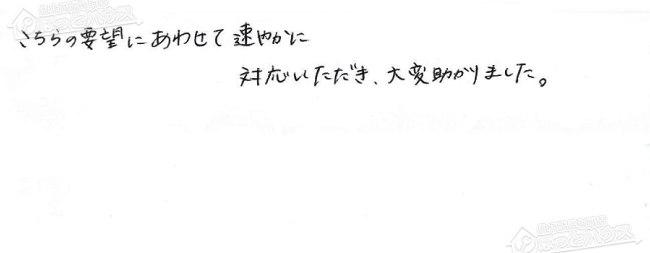 こちらの要望にあわせて速やかに
対応いただき、大変助かりました。